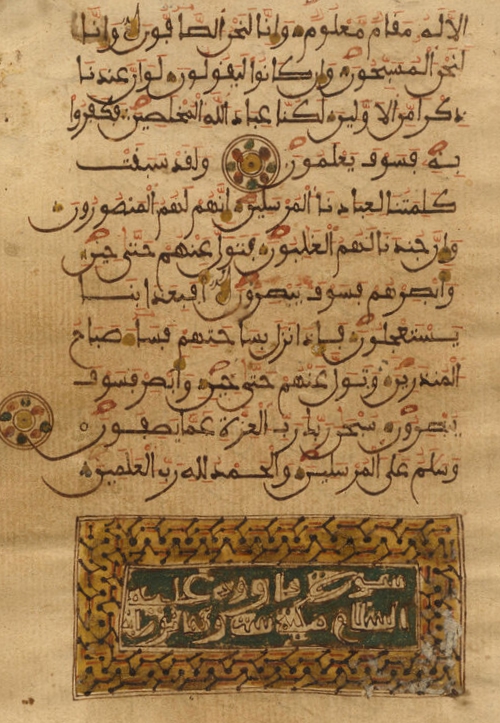 الا له مقام معلوم وانا لنحن الصافون وانا
لنحن المسبحون وان كانوا ليقولون لو ان عندنا
ذكرا من الاولين لكنا عباد الله المخلصين فكفروا
به فسوف يعلمون ولقد سبقت
كلمتنا لعبادنا المرسلين انهم لهم المنصورون
وان جندنا لهم الغلبون فتول عنهم حتى حين
وابصرهم فسوف يبصرون افبعذابنا
يستعجلون فاذا نزل بساحتهم فساء صباح
المنذرين وتول عنهم حتى حين وابصر فسوف
يبصرون سبحن ربك رب العزة عما يصفون
وسلم على المرسلين والحمد لله رب العلمين
سورة داوود عليه
السلام مكية ست وثمانون